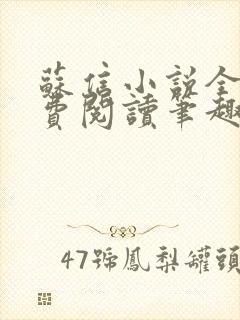 蘇信小說全
費閱讀筆趣
47號鳳梨罐頭